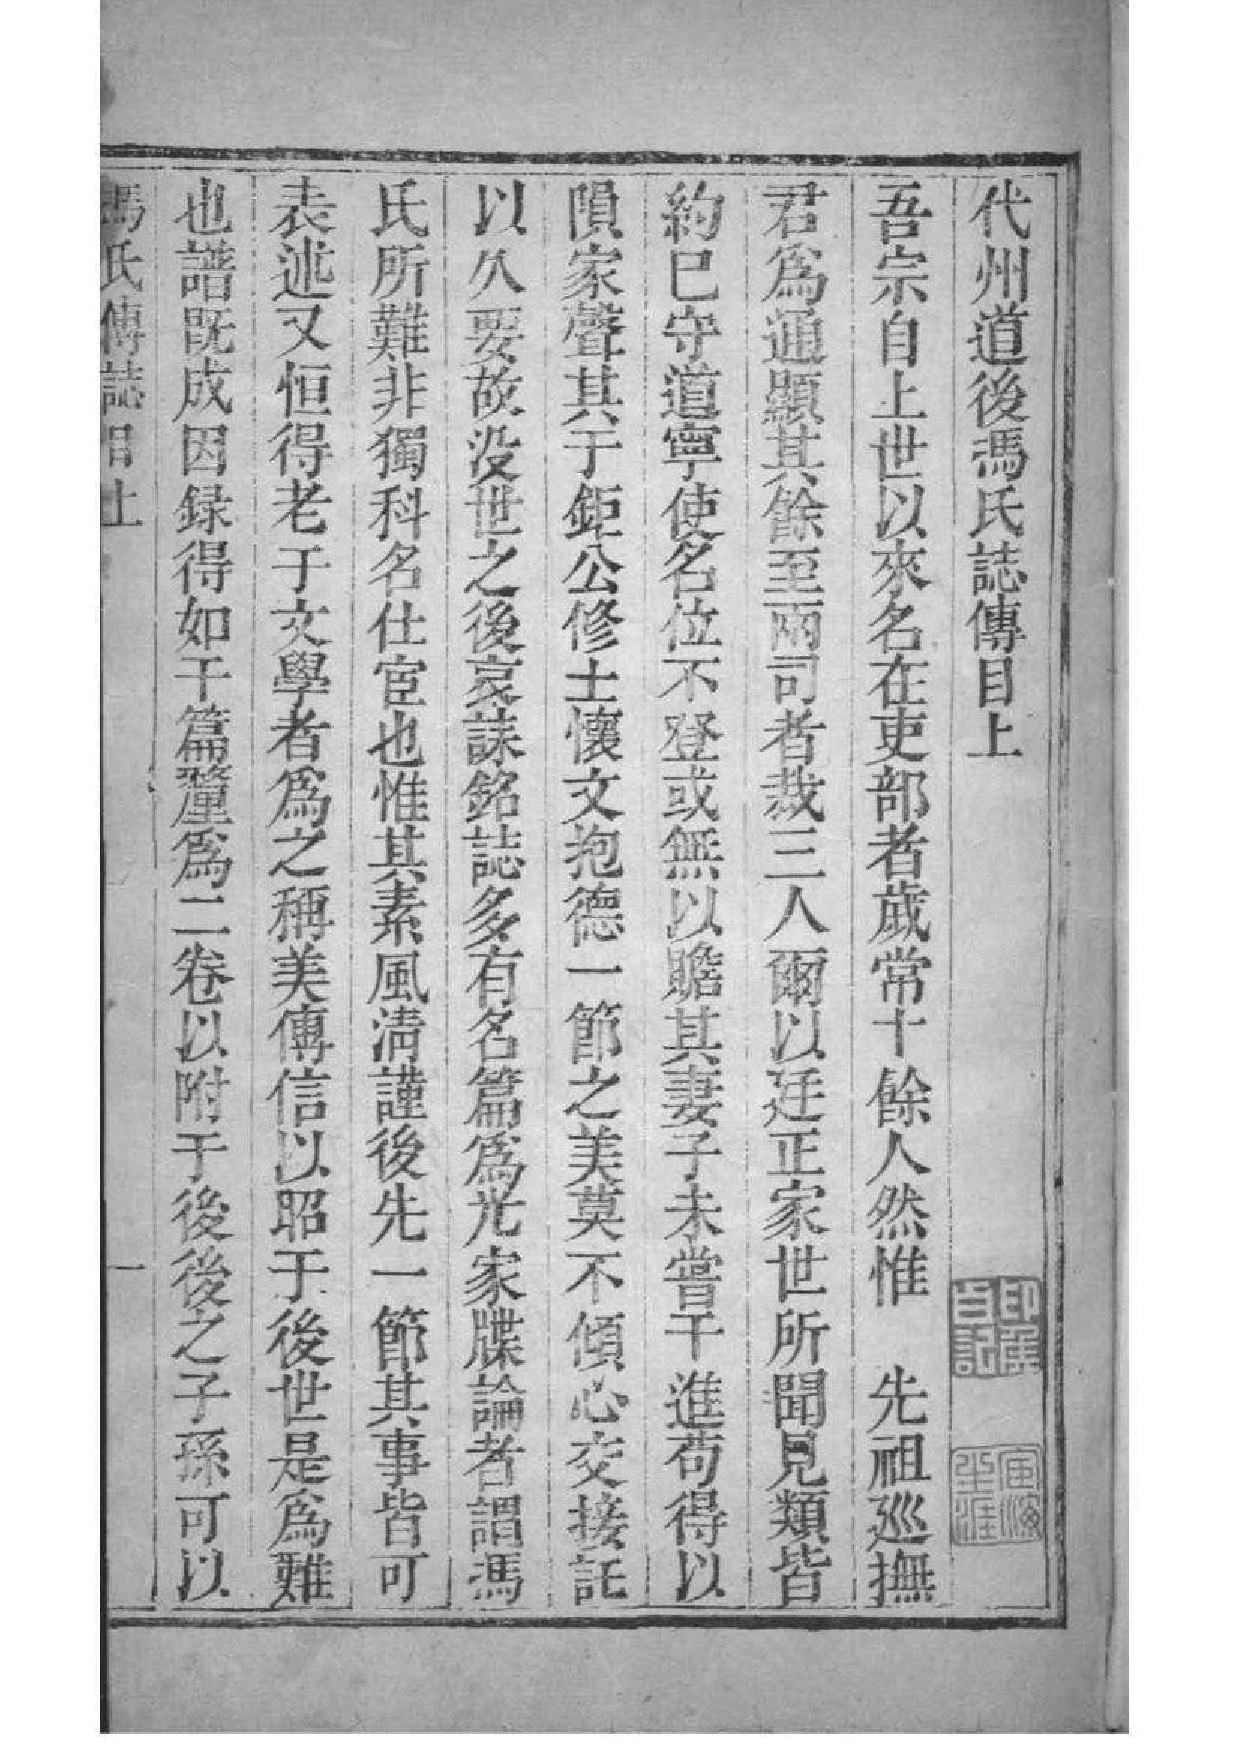 代州道後馮氏誌傳目上
吾宗自上世以來名在吏部者歲常十餘人然惟　先祖巡撫
君爲通顯其餘至兩司者裁三人爾以廷正家世所聞見類皆
約已守道寧使名位不登或無以贍其妻子未嘗干進苟得以
隕家聲其于鉅公修士懷文抱德一節之美莫不傾心交接託
以久要故没世之後哀誄銘誌多有名篇爲光家牒論者謂馮
氏所難非獨科名仕宦也惟其素風清謹後先一節其事皆可
表述又恒得老于文學者爲之稱美傳信以昭于後世是爲難
也譜既成因録得如干篇釐爲二卷以附于後後之子孫可以
馮氏傳誌目上
一